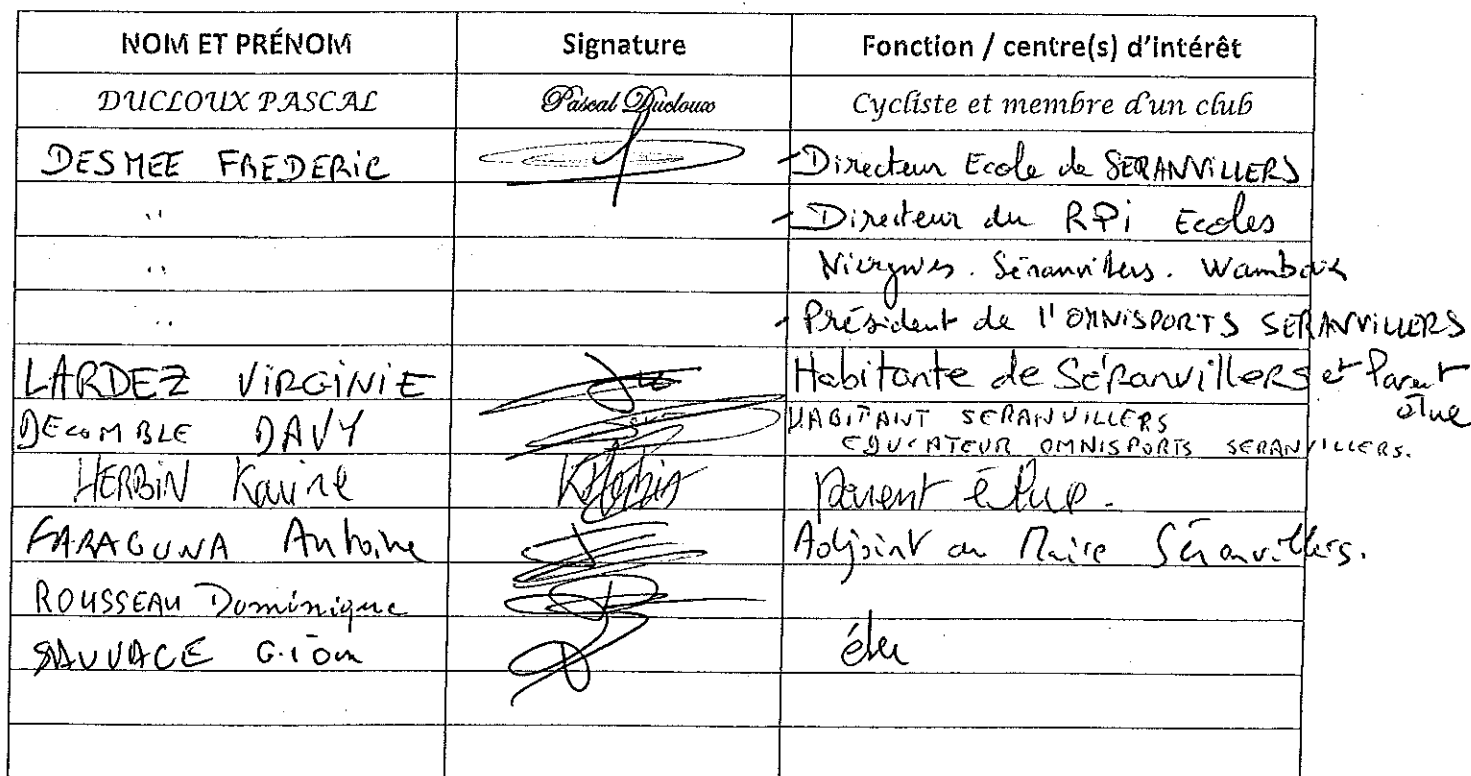 NOM ET PRÉNOM Signature Fonction / centre(s) d'intérêt
DUCLOUX PASCAL Pascal Ducloux Cycliste et membre d'un club
DESMEE FREDERIC - Directeur Ecole de SERANVILLERS
" - Directeur du RPi Ecoles
" Niergnies. Séranvillers. Wambaix
" - Président de l'OMNISPORTS SERANVILLERS
LARDEZ VIRGINIE Habitante de Séranvillers et Parent
élue
DECOMBLE DAVY HABITANT SERANVILLERS
EDUCATEUR OMNISPORTS SERANVILLERS.
HERBIN Karine KHerbin parent élue.
FARAGUNA Antoine Adjoint au Maire Séranvillers.
ROUSSEAU Dominique
SAUVAGE élu